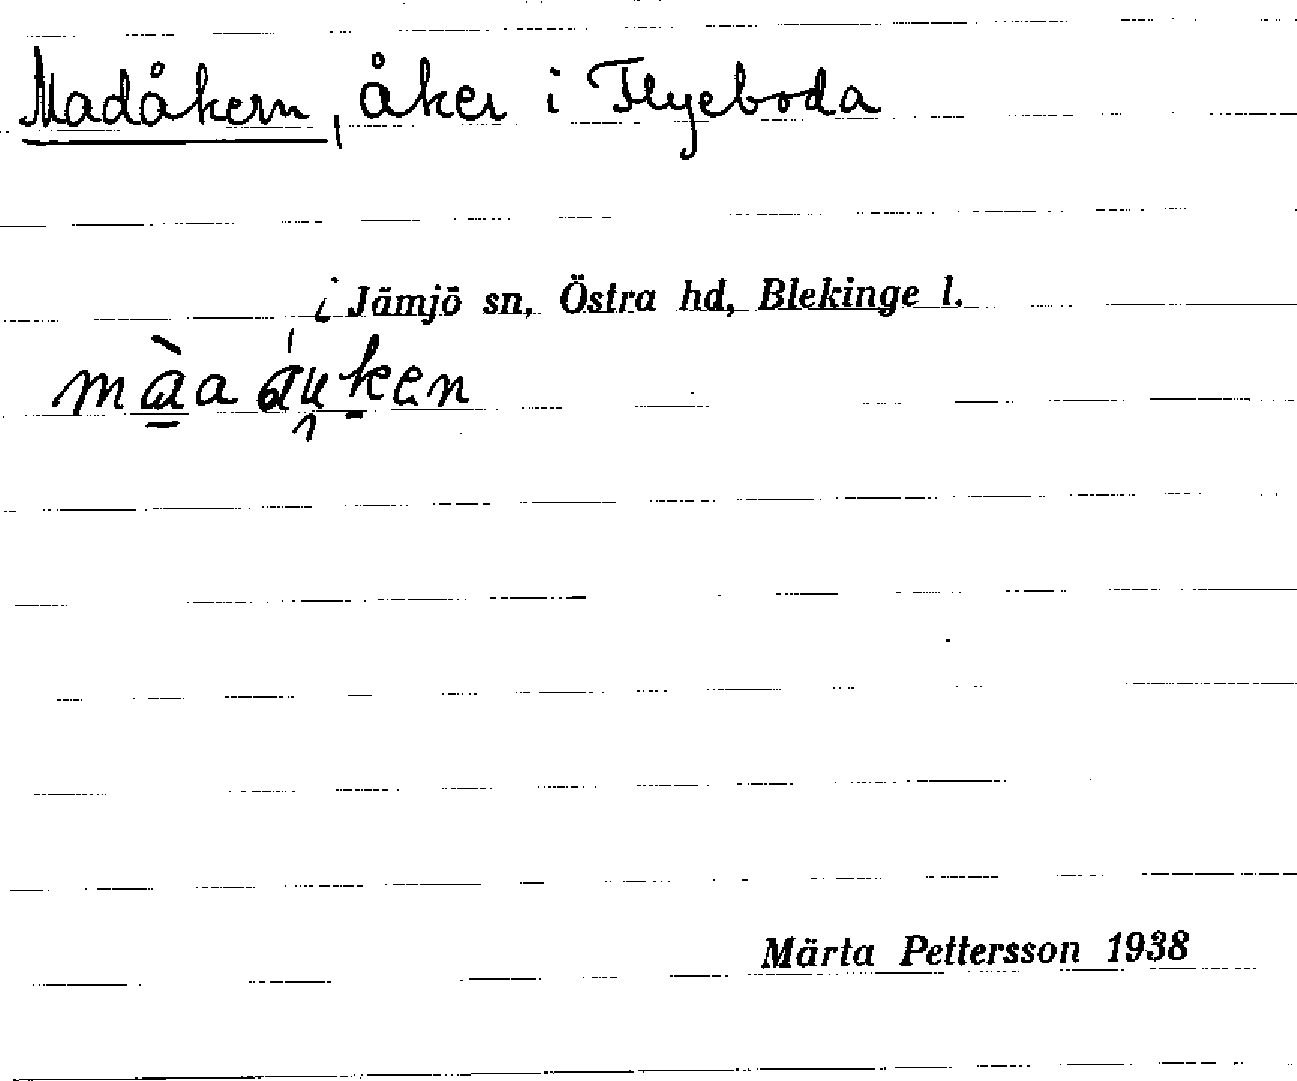 Madåkern, åker i Flyeboda
i Jämjö sn, Östra hd, Blekinge l.
Märta Pettersson 1938